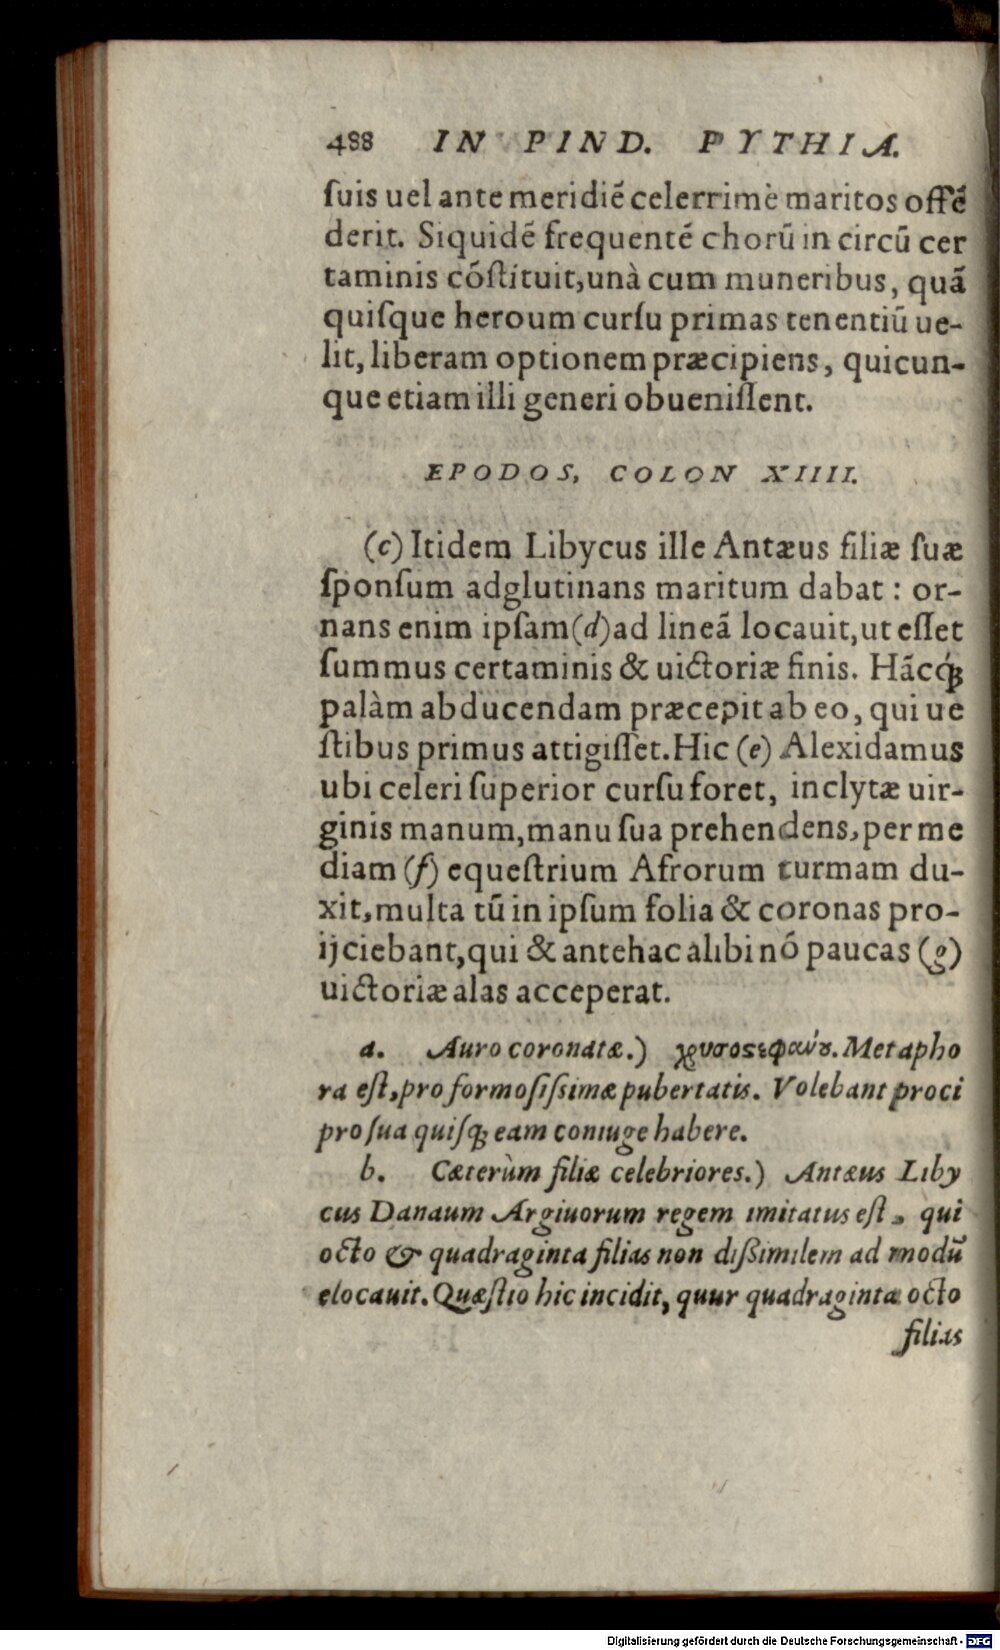 488 IN PIND. PYTHIA.
ſuis uel ante meridiē celerrimè maritos offē
derit. Siquidē frequentē chorū in circū cer
taminis cōſtituit,unà cum muneribus, quā
quiſque heroum curſu primas tenentiū ue-
lit, liberam optionem præcipiens, quicun-
que etiam illi generi obueniſſent.
EPODOS, COLON XIIII.
(c) Itidem Libycus ille Antæus filiæ ſuæ
ſponſum adglutinans maritum dabat : or-
nans enim ipſam (d) ad lineā locauit, ut eſſet
ſummus certaminis & uictoriæ finis. Hācq́ꝫ
palàm abducendam præcepit ab eo, qui ue
ſtibus primus attigiſſet. Hic (e) Alexidamus
ubi celeri ſuperior curſu foret, inclytæ uir-
ginis manum, manu ſua prehendens, per me
diam (f) equeſtrium Afrorum turmam du-
xit, multa tū in ipſum folia & coronas pro-
ijciebant, qui & antehac alibi nō paucas (g)
uictoriæ alas acceperat.
a. Auro coronatæ.) χρυσοϛεφάνȣ. Metapho
ra eſt, pro formoſiſsimæ pubertatis. Volebant proci
pro ſua quiſqꝫ eam coniuge habere.
b. Cæterùm filiæ celebriores.) Antæus Liby
cus Danaum Argiuorum regem imitatus eſt, qui
octo & quadraginta filias non dißimilem ad modū
elocauit. Quæſtio hic incidit, quur quadraginta octo
filias
Digitalisierung gefördert durch die Deutsche Forschungsgemeinschaft - DFG